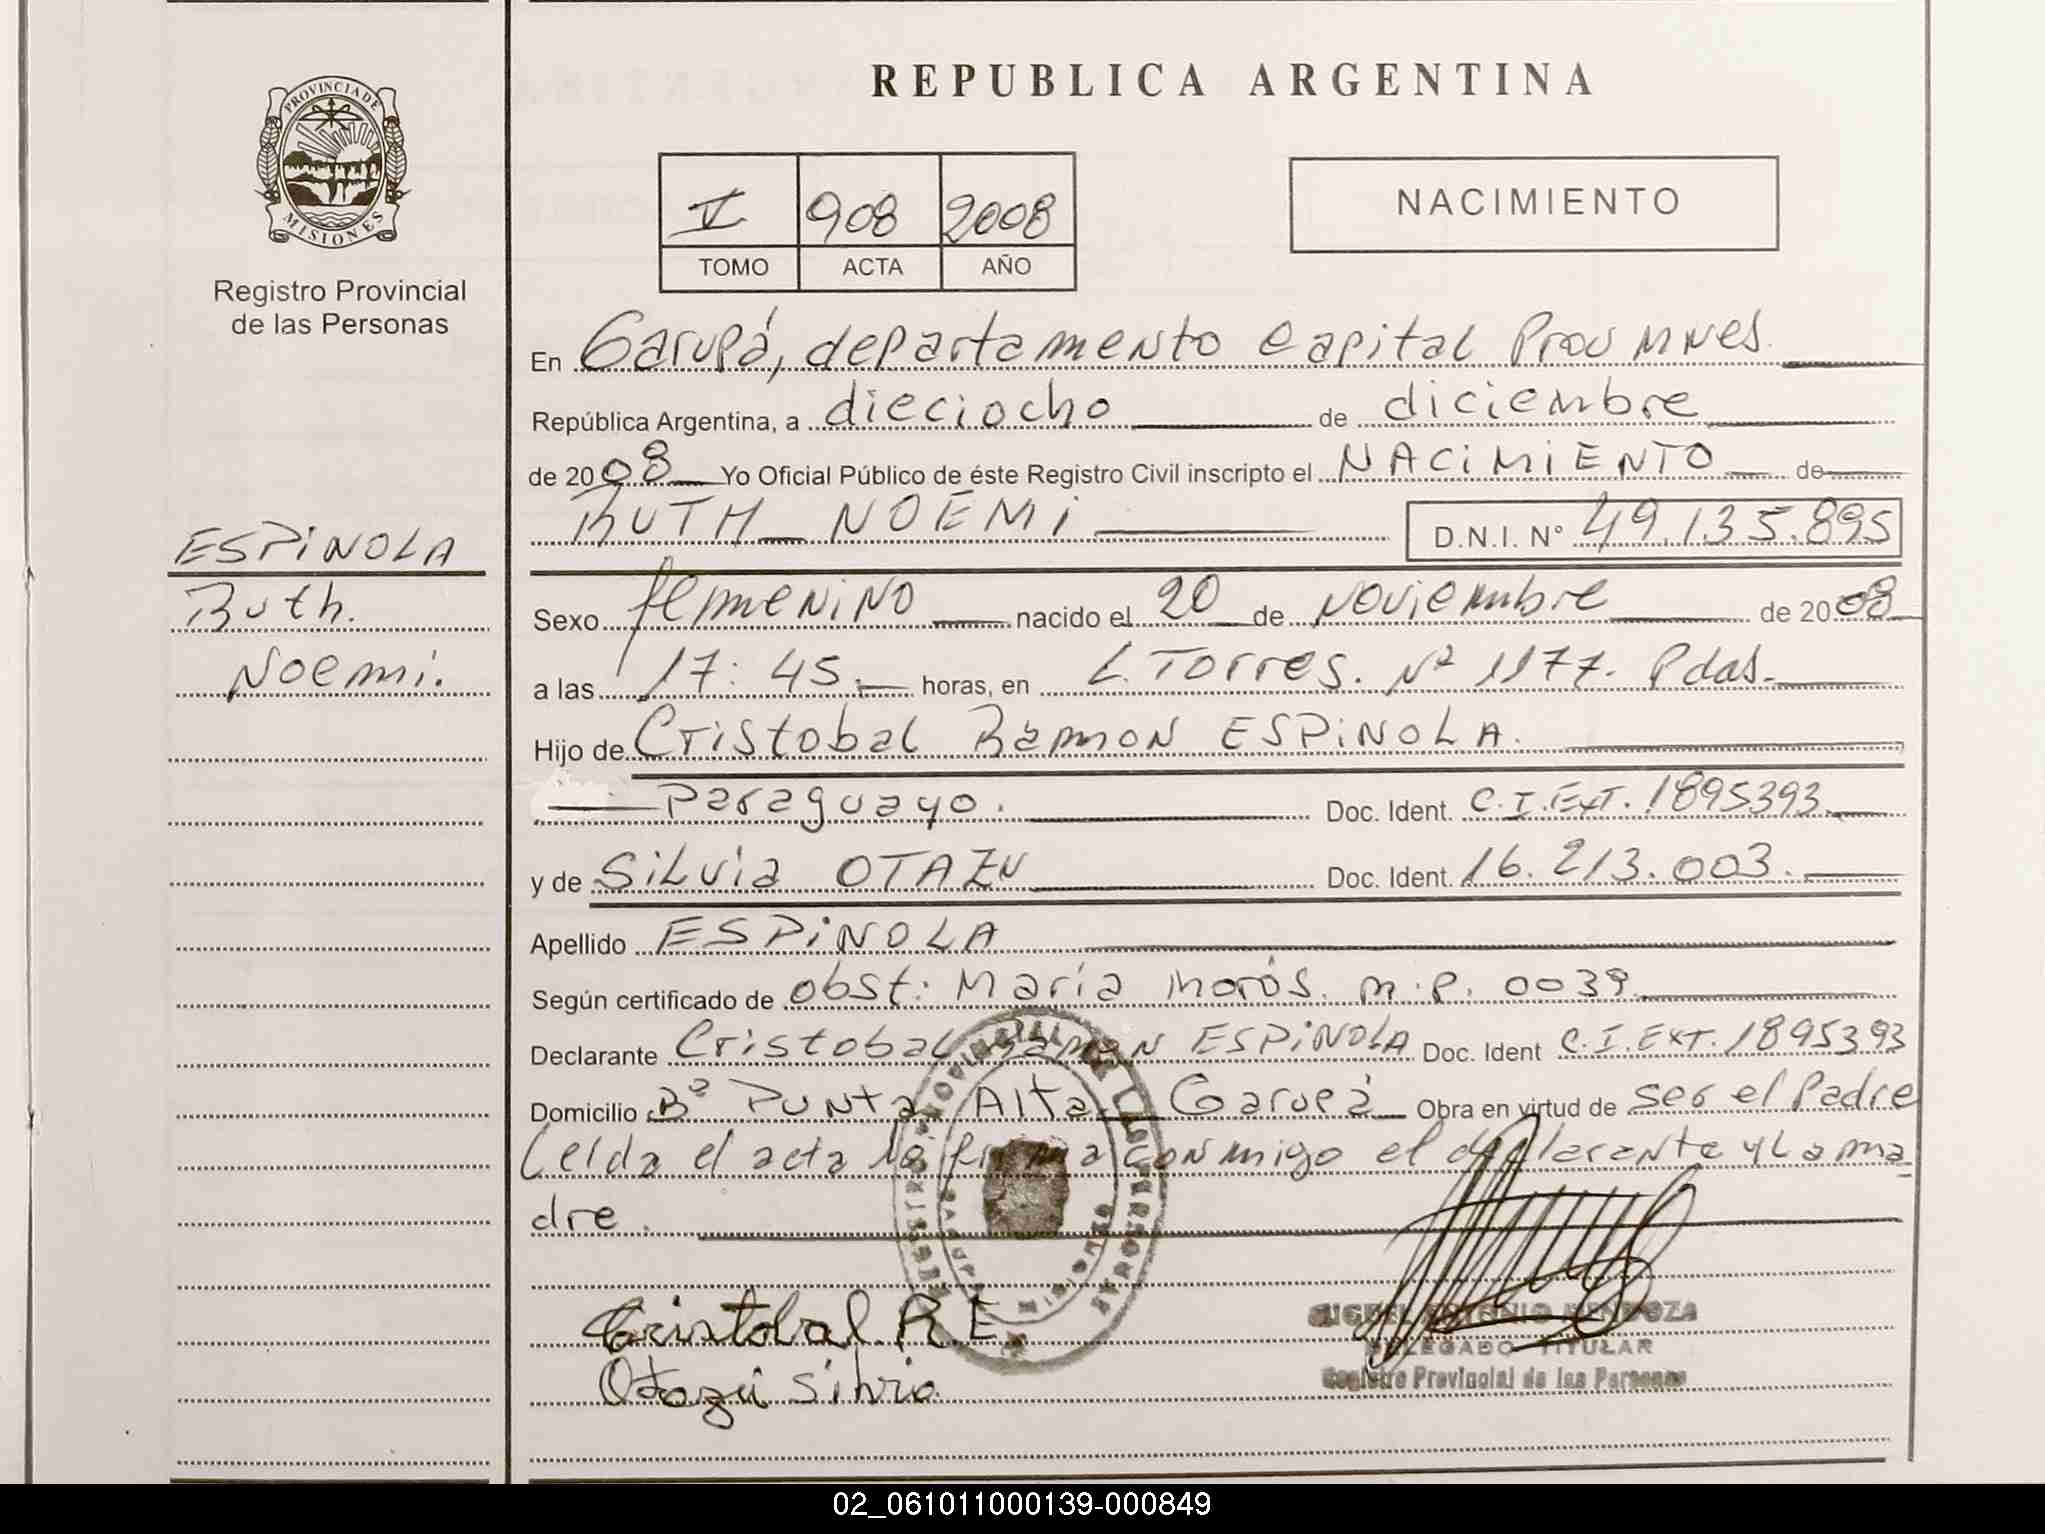 REPUBLICA ARGENTINA
PROVINCIA DE
MISIONES
Registro Provincial
de las Personas
V 908 2008
TOMO ACTA AÑO
NACIMIENTO
En Garupá, departamento capital Prov MNES.
República Argentina, a dieciocho de diciembre
de 2008 Yo Oficial Público de éste Registro Civil inscripto el NACIMIENTO de
RUTH NOEMI D.N.I. Nº 49.135.895
ESPINOLA
Ruth.
Noemi.
Sexo femenino nacido el 20 de noviembre de 2008
a las 17:45.- horas, en L. Torres. Nº 1177. Pdas.
Hijo de Cristobal Ramon ESPINOLA.
Paraguayo. Doc. Ident. C.I.EXT. 1895393.
y de Silvia OTAZU Doc. Ident. 16.213.003.
Apellido ESPINOLA
Según certificado de obst: María Morós. m.p. 0039
Declarante Cristobal Ramon ESPINOLA Doc. Ident C.I.EXT. 1895393
Domicilio Bº Punta Alta Garupá Obra en virtud de ser el Padre
Leida el acta la firma conmigo el declarante y La ma
dre.
Cristobal R E
Otazú Silvia
MIGUEL ANTONIO MENDOZA
DELEGADO TITULAR
Registro Provincial de las Personas
02_061011000139-000849